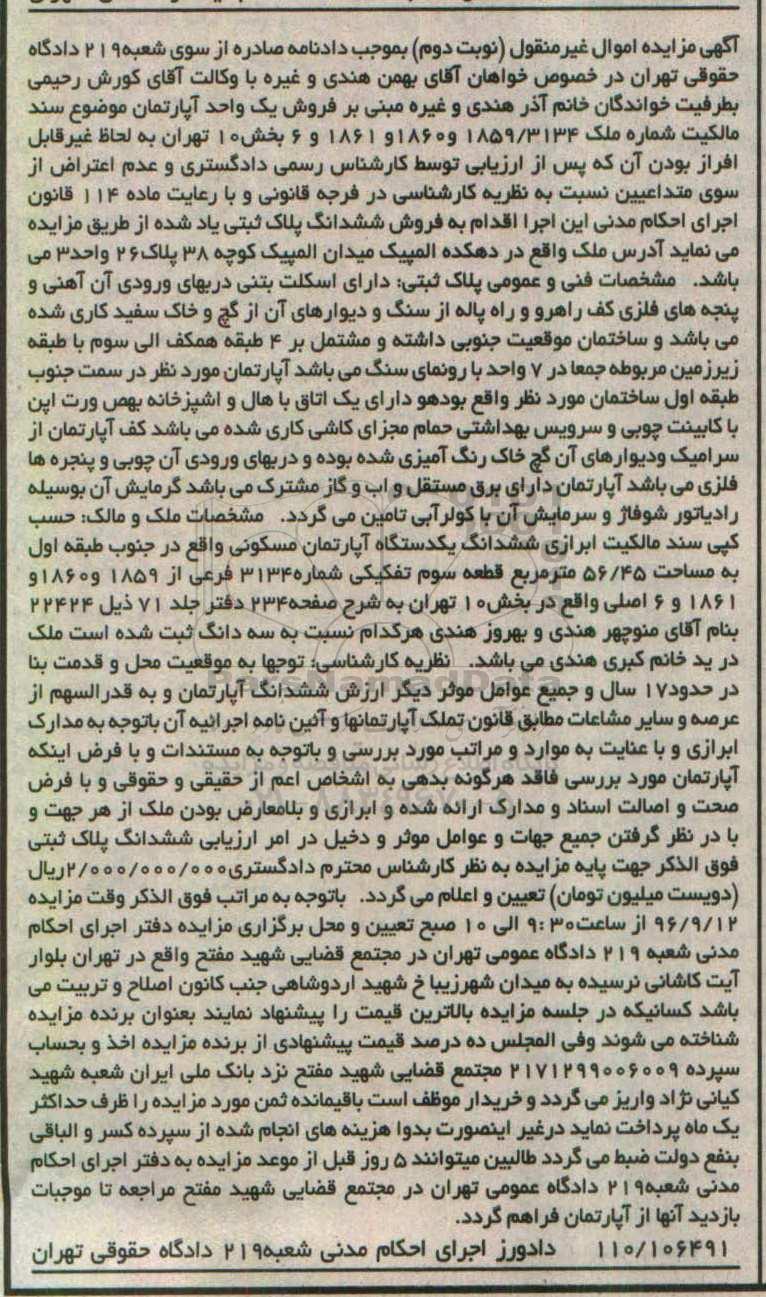 آگهی مزایده اموال غیرمنقول (نوبت دوم) بموجب دادنامه صادره از سوی شعبه۲۱۹ دادگاه
حقوقی تهران در خصوص خواهان آقای بهمن هندی و غیره با وکالت آقای کورش رحیمی
بطرفیت خواندگان خانم آذر هندی و غیره مبنی بر فروش یک واحد آپارتمان موضوع سند
مالکیت شماره ملک ۱۸۵۹/۳۱۳۴ و۱۸۶۰و ۱۸۶۱ و ۶ بخش۱۰ تهران به لحاظ غیرقابل
افراز بودن آن که پس از ارزیابی توسط کارشناس رسمی دادگستری و عدم اعتراض از
سوی متداعیین نسبت به نظریه کارشناسی در فرجه قانونی و با رعایت ماده ۱۱۴ قانون
اجرای احکام مدنی این اجرا اقدام به فروش ششدانگ پلاک ثبتی یاد شده از طریق مزایده
می نماید آدرس ملک واقع در دهکده المپیک میدان المپیک کوچه ۳۸ پلاک۲۶ واحد۳ می
باشد. مشخصات فنی و عمومی پلاک ثبتی: دارای اسکلت بتنی دربهای ورودی آن آهنی و
پنجه های فلزی کف راهرو و راه پاله از سنگ و دیوارهای آن از گچ و خاک سفید کاری شده
می باشد و ساختمان موقعیت جنوبی داشته و مشتمل بر ۴ طبقه همکف الی سوم با طبقه
زیرزمین مربوطه جمعا در ۷ واحد با رونمای سنگ می باشد آپارتمان مورد نظر در سمت جنوب
طبقه اول ساختمان مورد نظر واقع بودهو دارای یک اتاق با هال و اشپزخانه بهص ورت اپن
با کابینت چوبی و سرویس بهداشتی حمام مجزای کاشی کاری شده می باشد کف آپارتمان از
سرامیک ودیوارهای آن گچ خاک رنگ آمیزی شده بوده و دربهای ورودی آن چوبی و پنجره ها
فلزی می باشد آپارتمان دارای برق مستقل و اب و گاز مشترک می باشد گرمایش آن بوسیله
رادیاتور شوفاژ و سرمایش آن با کولرآبی تامین می گردد. مشخصات ملک و مالک: حسب
کپی سند مالکیت ابرازی ششدانگ یکدستگاه آپارتمان مسکونی واقع در جنوب طبقه اول
به مساحت ۵۶/۴۵ مترمربع قطعه سوم تفکیکی شماره۳۱۳۴ فرعی از ۱۸۵۹ و۱۸۶۰و
۱۸۶۱ و ۶ اصلی واقع در بخش۱۰ تهران به شرح صفحه۲۳۴ دفتر جلد ۷۱ ذیل ۲۲۴۲۴
بنام آقای منوچهر هندی و بهروز هندی هرکدام نسبت به سه دانگ ثبت شده است ملک
در ید خانم کبری هندی می باشد. نظریه کارشناسی: توجها به موقعیت محل و قدمت بنا
در حدود۱۷ سال و جمیع عوامل موثر دیگر ارزش ششدانگ آپارتمان و به قدرالسهم از
عرصه و سایر مشاعات مطابق قانون تملک آپارتمانها و آئین نامه اجرائیه آن باتوجه به مدارک
ابرازی و با عنایت به موارد و مراتب مورد بررسی و باتوجه به مستندات و با فرض اینکه
آپارتمان مورد بررسی فاقد هرگونه بدهی به اشخاص اعم از حقیقی و حقوقی و با فرض
صحت و اصالت اسناد و مدارک ارائه شده و ابرازی و بلامعارض بودن ملک از هر جهت و
با در نظر گرفتن جمیع جهات و عوامل موثر و دخیل در امر ارزیابی ششدانگ پلاک ثبتی
فوق الذکر جهت پایه مزایده به نظر کارشناس محترم دادگستری۲/۰۰۰/۰۰۰/۰۰۰ریال
(دویست میلیون تومان) تعیین و اعلام می گردد. باتوجه به مراتب فوق الذکر وقت مزایده
۹۶/۹/۱۲ از ساعت۹:۳۰ الی ۱۰ صبح تعیین و محل برگزاری مزایده دفتر اجرای احکام
مدنی شعبه ۲۱۹ دادگاه عمومی تهران در مجتمع قضایی شهید مفتح واقع در تهران بلوار
آیت کاشانی نرسیده به میدان شهرزیبا خ شهید اردوشاهی جنب کانون اصلاح و تربیت می
باشد کسانیکه در جلسه مزایده بالاترین قیمت را پیشنهاد نمایند بعنوان برنده مزایده
شناخته می شوند وفی المجلس ده درصد قیمت پیشنهادی از برنده مزایده اخذ و بحساب
سپرده ۲۱۷۱۲۹۹۰۰۶۰۰۹ مجتمع قضایی شهید مفتح نزد بانک ملی ایران شعبه شهید
کیانی نژاد واریز می گردد و خریدار موظف است باقیمانده ثمن مورد مزایده را ظرف حداکثر
یک ماه پرداخت نماید درغیر اینصورت بدوا هزینه های انجام شده از سپرده کسر و الباقی
بنفع دولت ضبط می گردد طالبین میتوانند ۵ روز قبل از موعد مزایده به دفتر اجرای احکام
مدنی شعبه۲۱۹ دادگاه عمومی تهران در مجتمع قضایی شهید مفتح مراجعه تا موجبات
بازدید آنها از آپارتمان فراهم گردد.
۱۱۰/۱۰۶۴۹۱ دادورز اجرای احکام مدنی شعبه۲۱۹ دادگاه حقوقی تهران